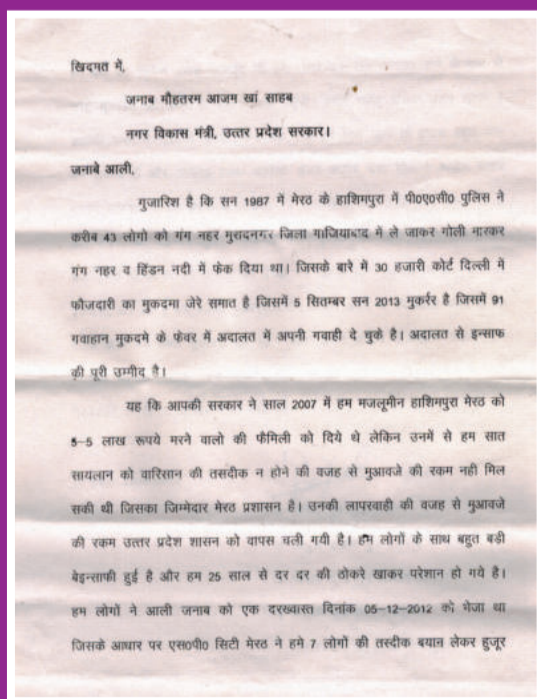 खिदमत में,
जनाब मौहतरम आजम खां साहब
नगर विकास मंत्री, उत्तर प्रदेश सरकार।
जनाबे आली,
गुजारिश है कि सन 1987 में मेरठ के हाशिमपुरा में पी०ए०सी० पुलिस ने
करीब 43 लोगो को गंग नहर मुरादनगर जिला गाजियाबाद में ले जाकर गोली मारकर
गंग नहर व हिंडन नदी में फेक दिया था। जिसके बारे में 30 हजारी कोर्ट दिल्ली में
फौजदारी का मुकदमा जेरे समात है जिसमें 5 सितम्बर सन 2013 मुकर्रर है जिसमें 91
गवाहान मुकदमे के फेवर में अदालत में अपनी गवाही दे चुके है। अदालत से इन्साफ
की पूरी उम्मीद है।
यह कि आपकी सरकार ने साल 2007 में हम मजलूमीन हाशिमपुरा मेरठ को
5-5 लाख रूपये मरने वालो की फैमिली को दिये थे लेकिन उनमें से हम सात
सायलान को वारिसान की तसदीक न होने की वजह से मुआवजे की रकम नही मिल
सकी थी जिसका जिम्मेदार मेरठ प्रशासन है। उनकी लापरवाही की वजह से मुआवजे
की रकम उत्तर प्रदेश शासन को वापस चली गयी है। हम लोगों के साथ बहुत बडी
बेइन्साफी हुई है और हम 25 साल से दर दर की ठोकरे खाकर परेशान हो गये है।
हम लोगों ने आली जनाब को एक दरख्वास्त दिनांक 05-12-2012 को भेजा था
जिसके आधार पर एस०पी० सिटी मेरठ ने हमे 7 लोगों की तस्दीक बयान लेकर हुजूर